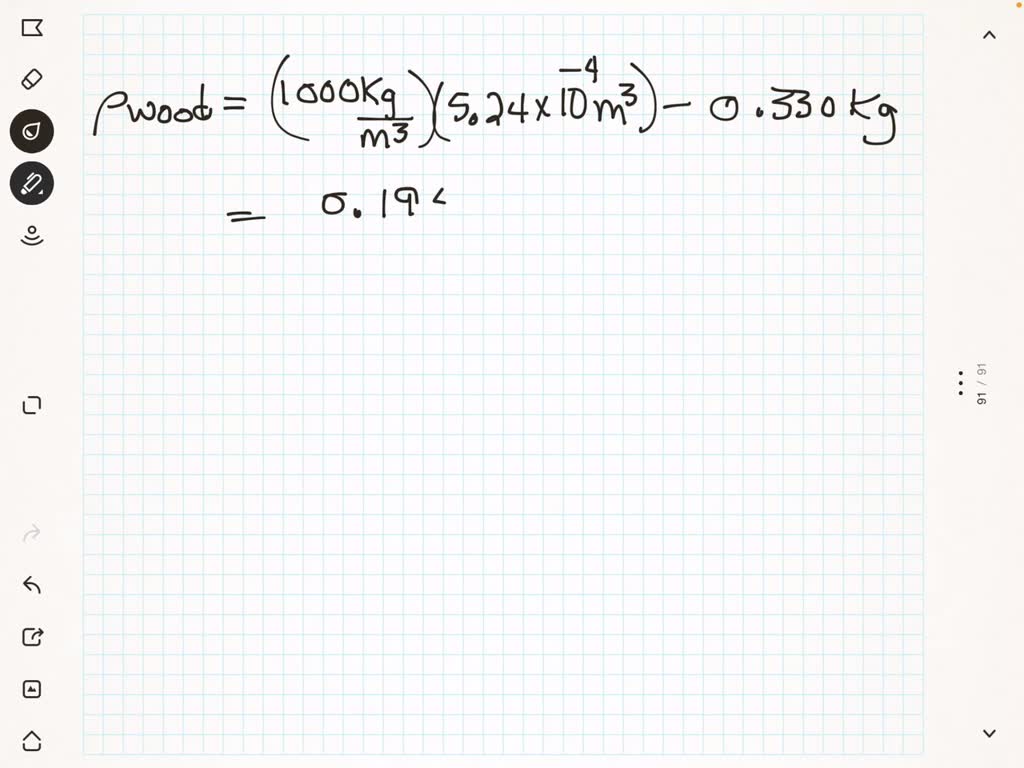 ρwood = (1000Kg/m³)(5.24×10⁻⁴m³) − 0.330Kg
= 0.19
91 / 91